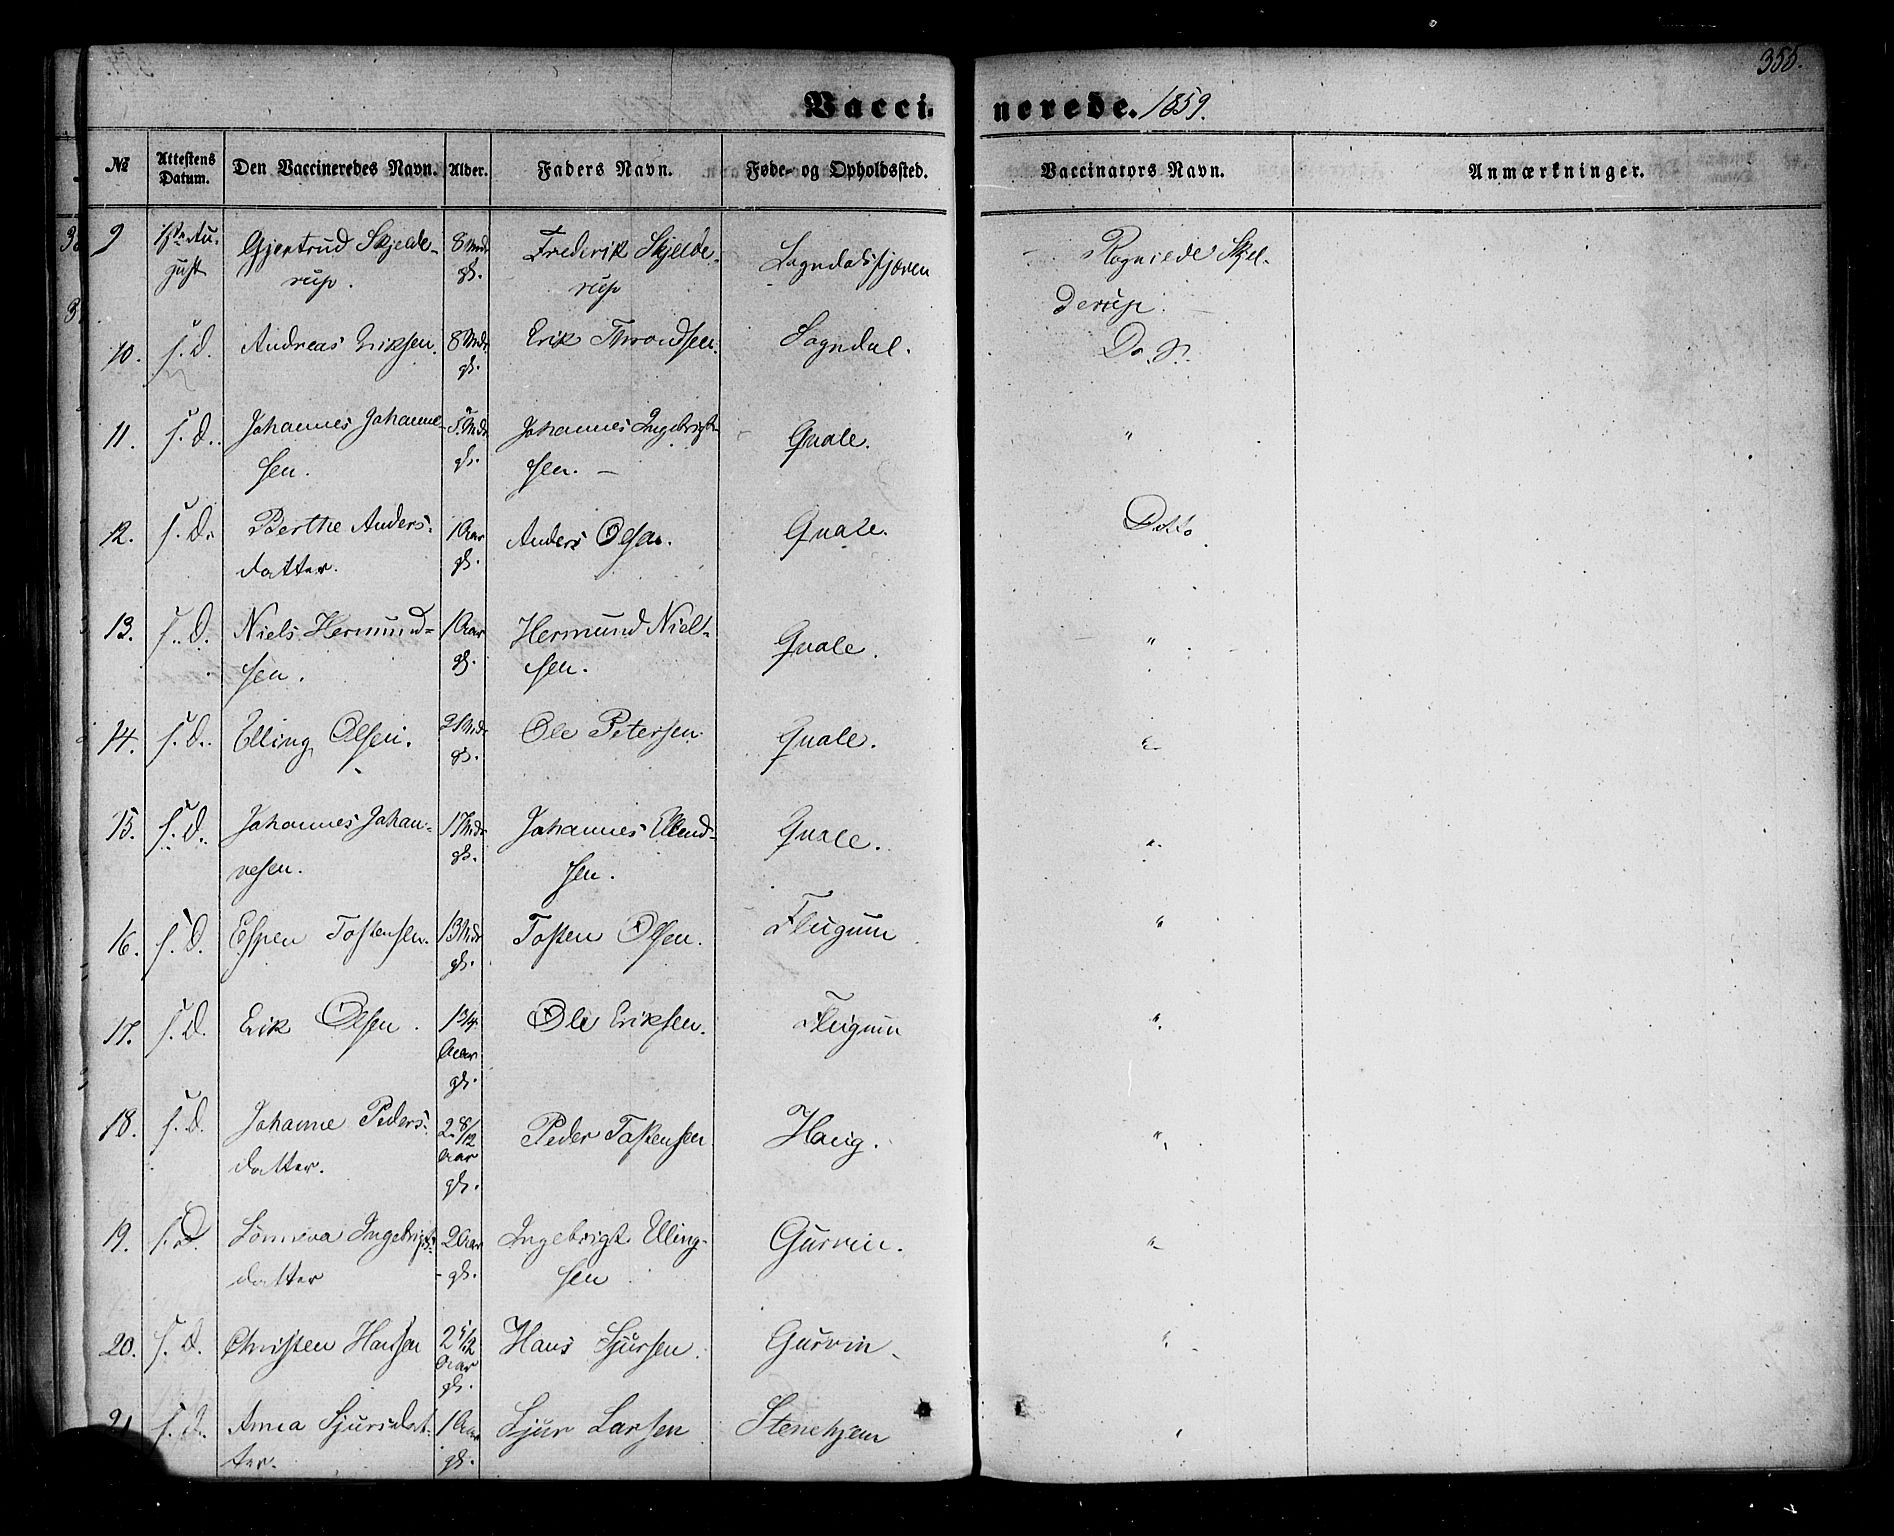 355.
Vaccinerede. 1859.
№ Attestens Datum. Den Vaccineredes Navn. Alder. Faders Navn. Føde- og Opholdssted. Vaccinators Navn. Anmærkninger.
9 August Gjertrud Skjelderup. 8 Mdr gl. Frederik Skjelderup Sogndalsfjæren Ragnilde Skjelderup.
10. s. D. Andreas Eriksen. 8 Mdr gl. Erik Throndsen. Sogndal. Do.
11. s. D. Johannes Johannesen. 5 Mdr gl. Johannes Ingebrigtsen. – Quale. "
12. s. D. Berthe Andersdatter. 1 Aar gl. Anders Olsen. Quale. Ditto
13. s. D. Niels Hermundsen. 1 Aar gl. Hermund Nielssen. Quale. "
14. s. D. Elling Olsen. Mdr gl. Ole Petersen Quale. "
15. s. D. Johannes Johannesen. 17 Mdr gl. Johannes Ellendsen. Quale. "
16. s. D. Espen Tostensen. 13 Mdr gl. Tosten Olsen. Flugum "
17. s. D. Erik Olsen. 1 3/4 Aar gl. Ole Eriksen. Flugum "
18. s. D. Johanne Pedersdatter. 2 8/12 Aar gl. Peder Tostensen Haug. "
19. s. D. Sønneva Ingebrigtsdatter 2 Aar gl. Ingebrigt Ellingsen Gurvin. "
20. s. D. Christen Hansen 2 5/12 Aar gl. Hans Sjursen. Gurvin "
21 s. D. Anna Sjursdatter. 1 Aar gl. Sjur Larsen Stenehjem "